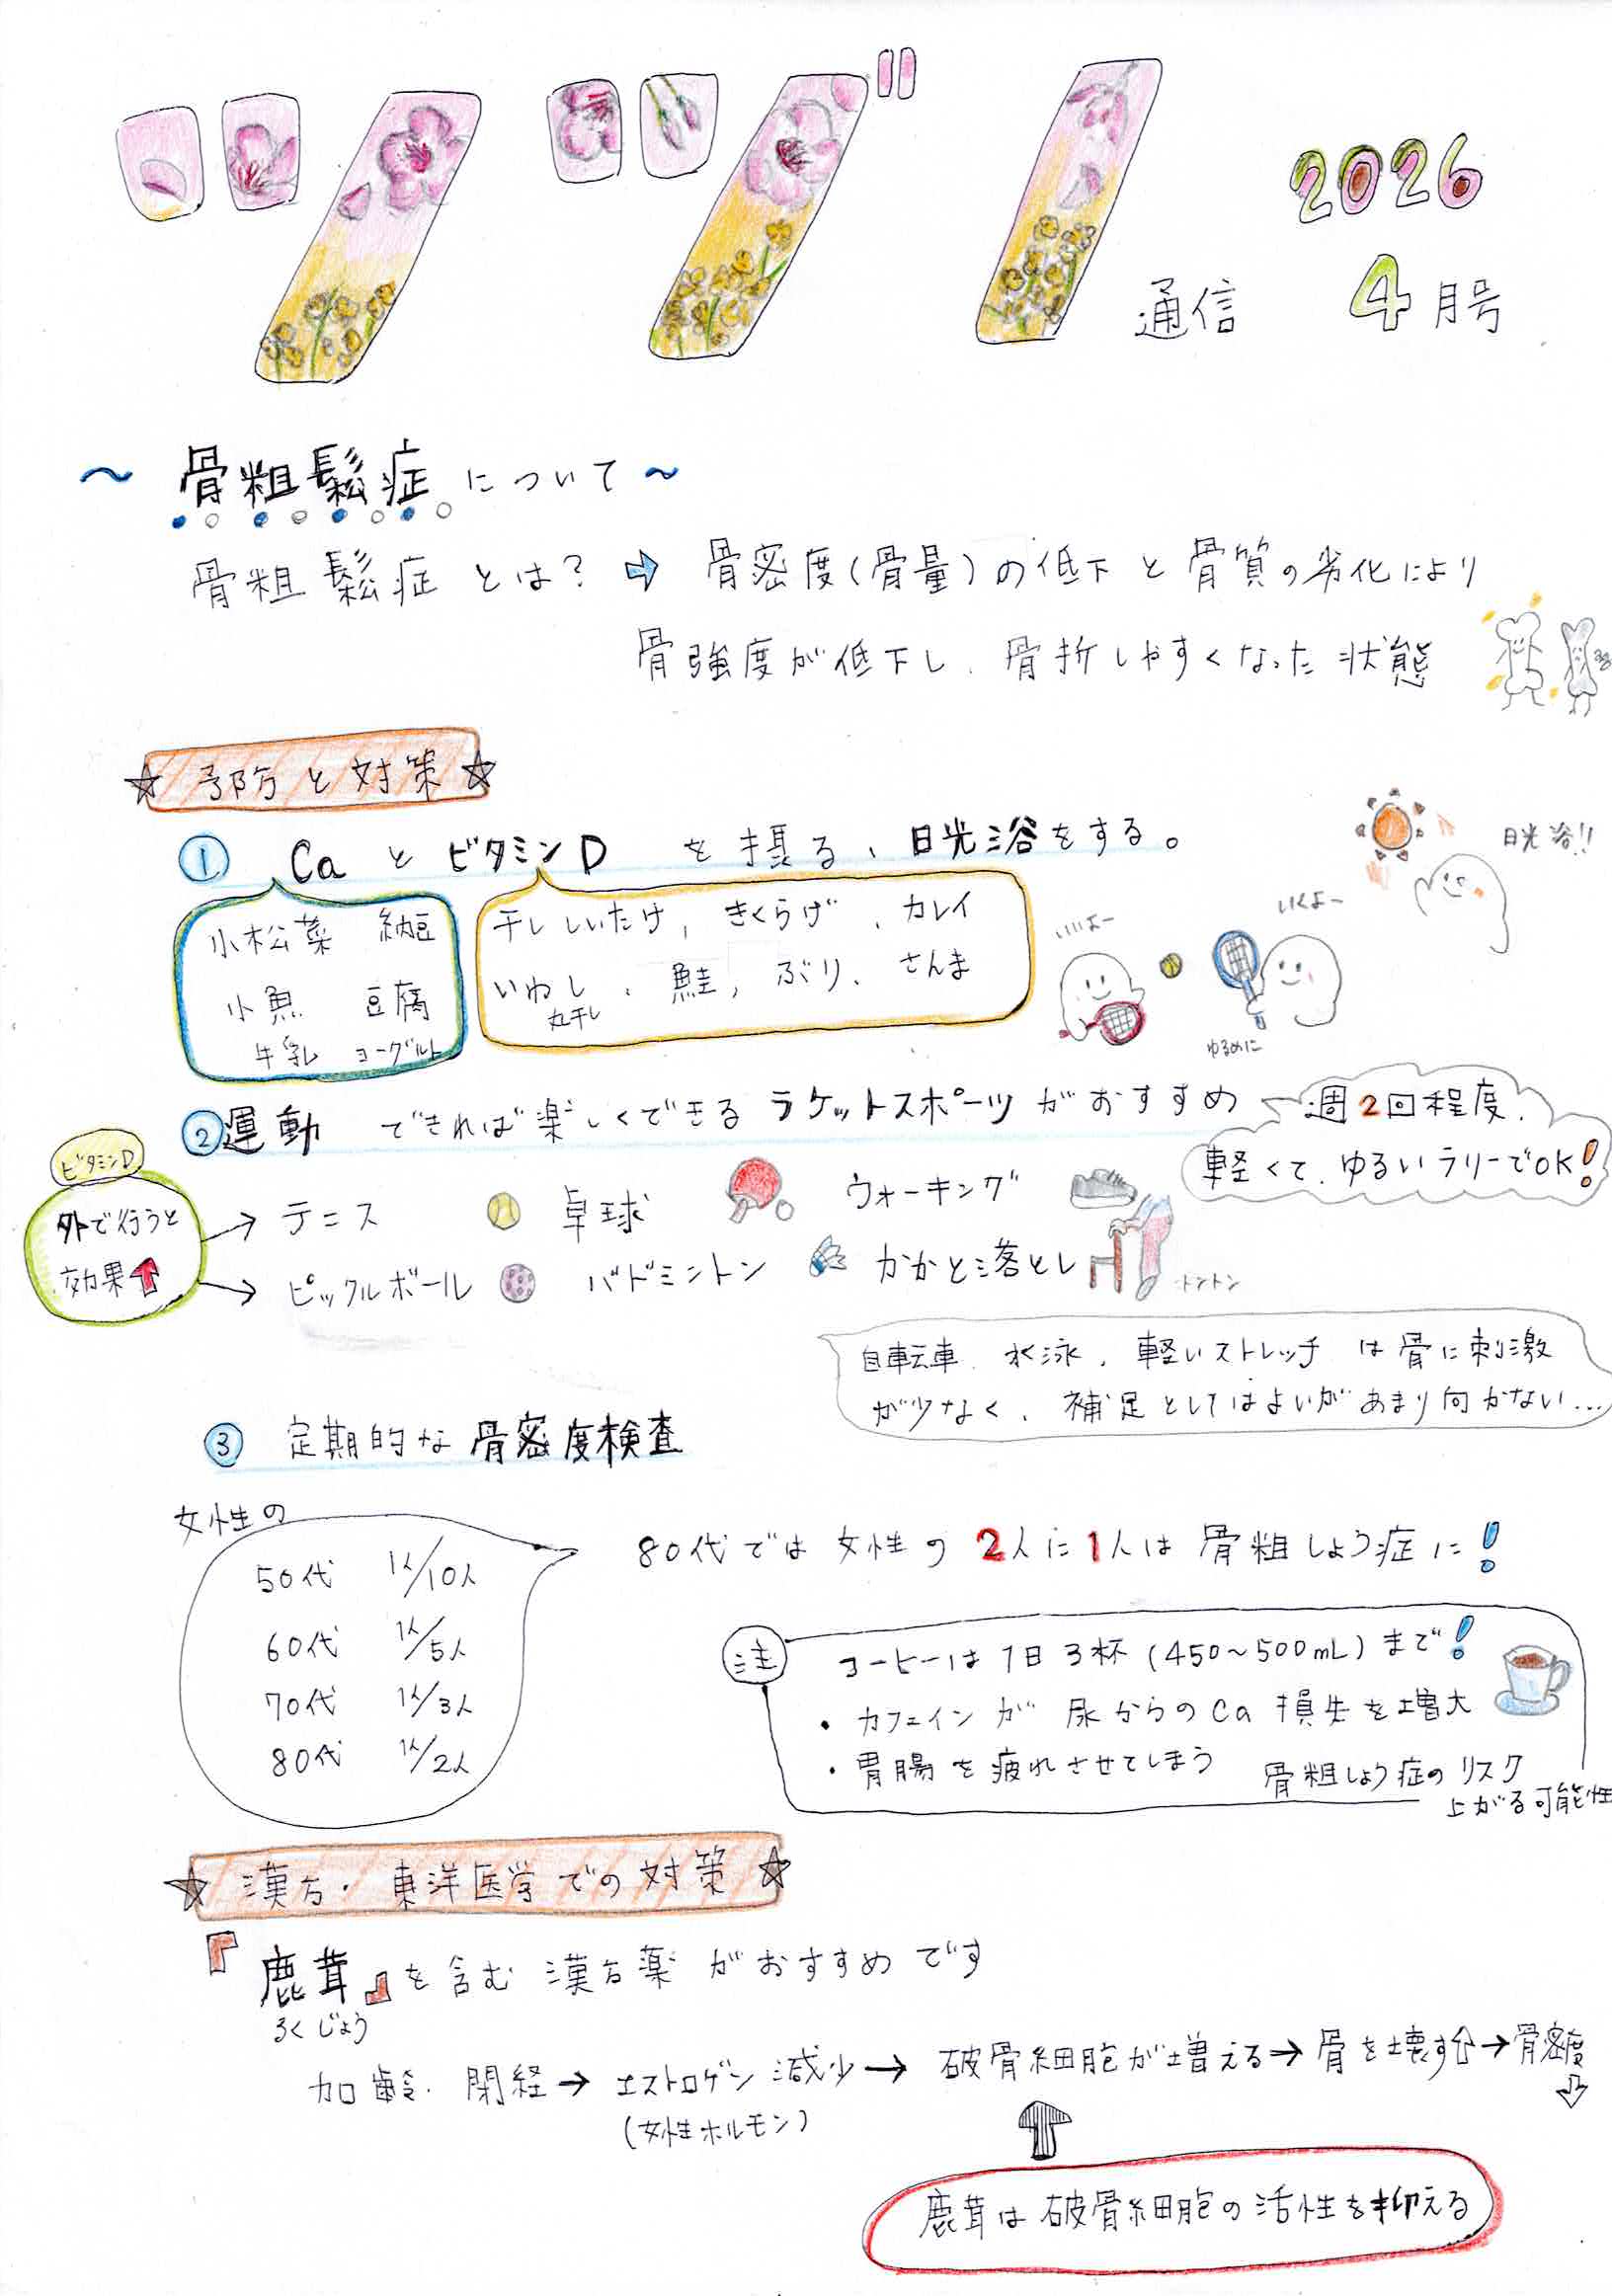 ツヅノ 通信 2026 4月号
～ 骨粗鬆症について ～
骨粗鬆症とは? ⇨ 骨密度(骨量)の低下と骨質の劣化により
骨強度が低下し、骨折しやすくなった状態
☆ 予防と対策 ☆
① CaとビタミンD を摂る、日光浴をする。
小松菜 納豆
小魚 豆腐
牛乳 ヨーグルト
干ししいたけ, きくらげ、カレイ
いわし丸干し、鮭, ぶり、さんま
日光浴!!
いくよー
いいよー
ゆるめに
②運動 できれば楽しくできるラケットスポーツがおすすめ
週2回程度.
軽くて、ゆるいラリーでOK!
ビタミンD
外で行うと
効果↑
→ テニス 卓球 ウォーキング
→ ピックルボール バドミントン かかと落とし
トントン
自転車、水泳、軽いストレッチ は骨に刺激
が少なく、補足としてはよいがあまり向かない...
③ 定期的な骨密度検査
女性の
50代 1人/10人
60代 1人/5人
70代 1人/3人
80代 1人/2人
80代では女性の2人に1人は骨粗しょう症に!
注 コーヒーは1日3杯(450～500mL)まで!
・カフェインが尿からのCa損失を増大
・胃腸を疲れさせてしまう
骨粗しょう症のリスク
上がる可能性
☆ 漢方・東洋医学での対策 ☆
『鹿茸』を含む漢方薬がおすすめです
ろくじょう
加齢、閉経→エストロゲン減少→破骨細胞が増える→骨を壊す⇧→骨密度⇩
(女性ホルモン)
鹿茸は破骨細胞の活性を抑える